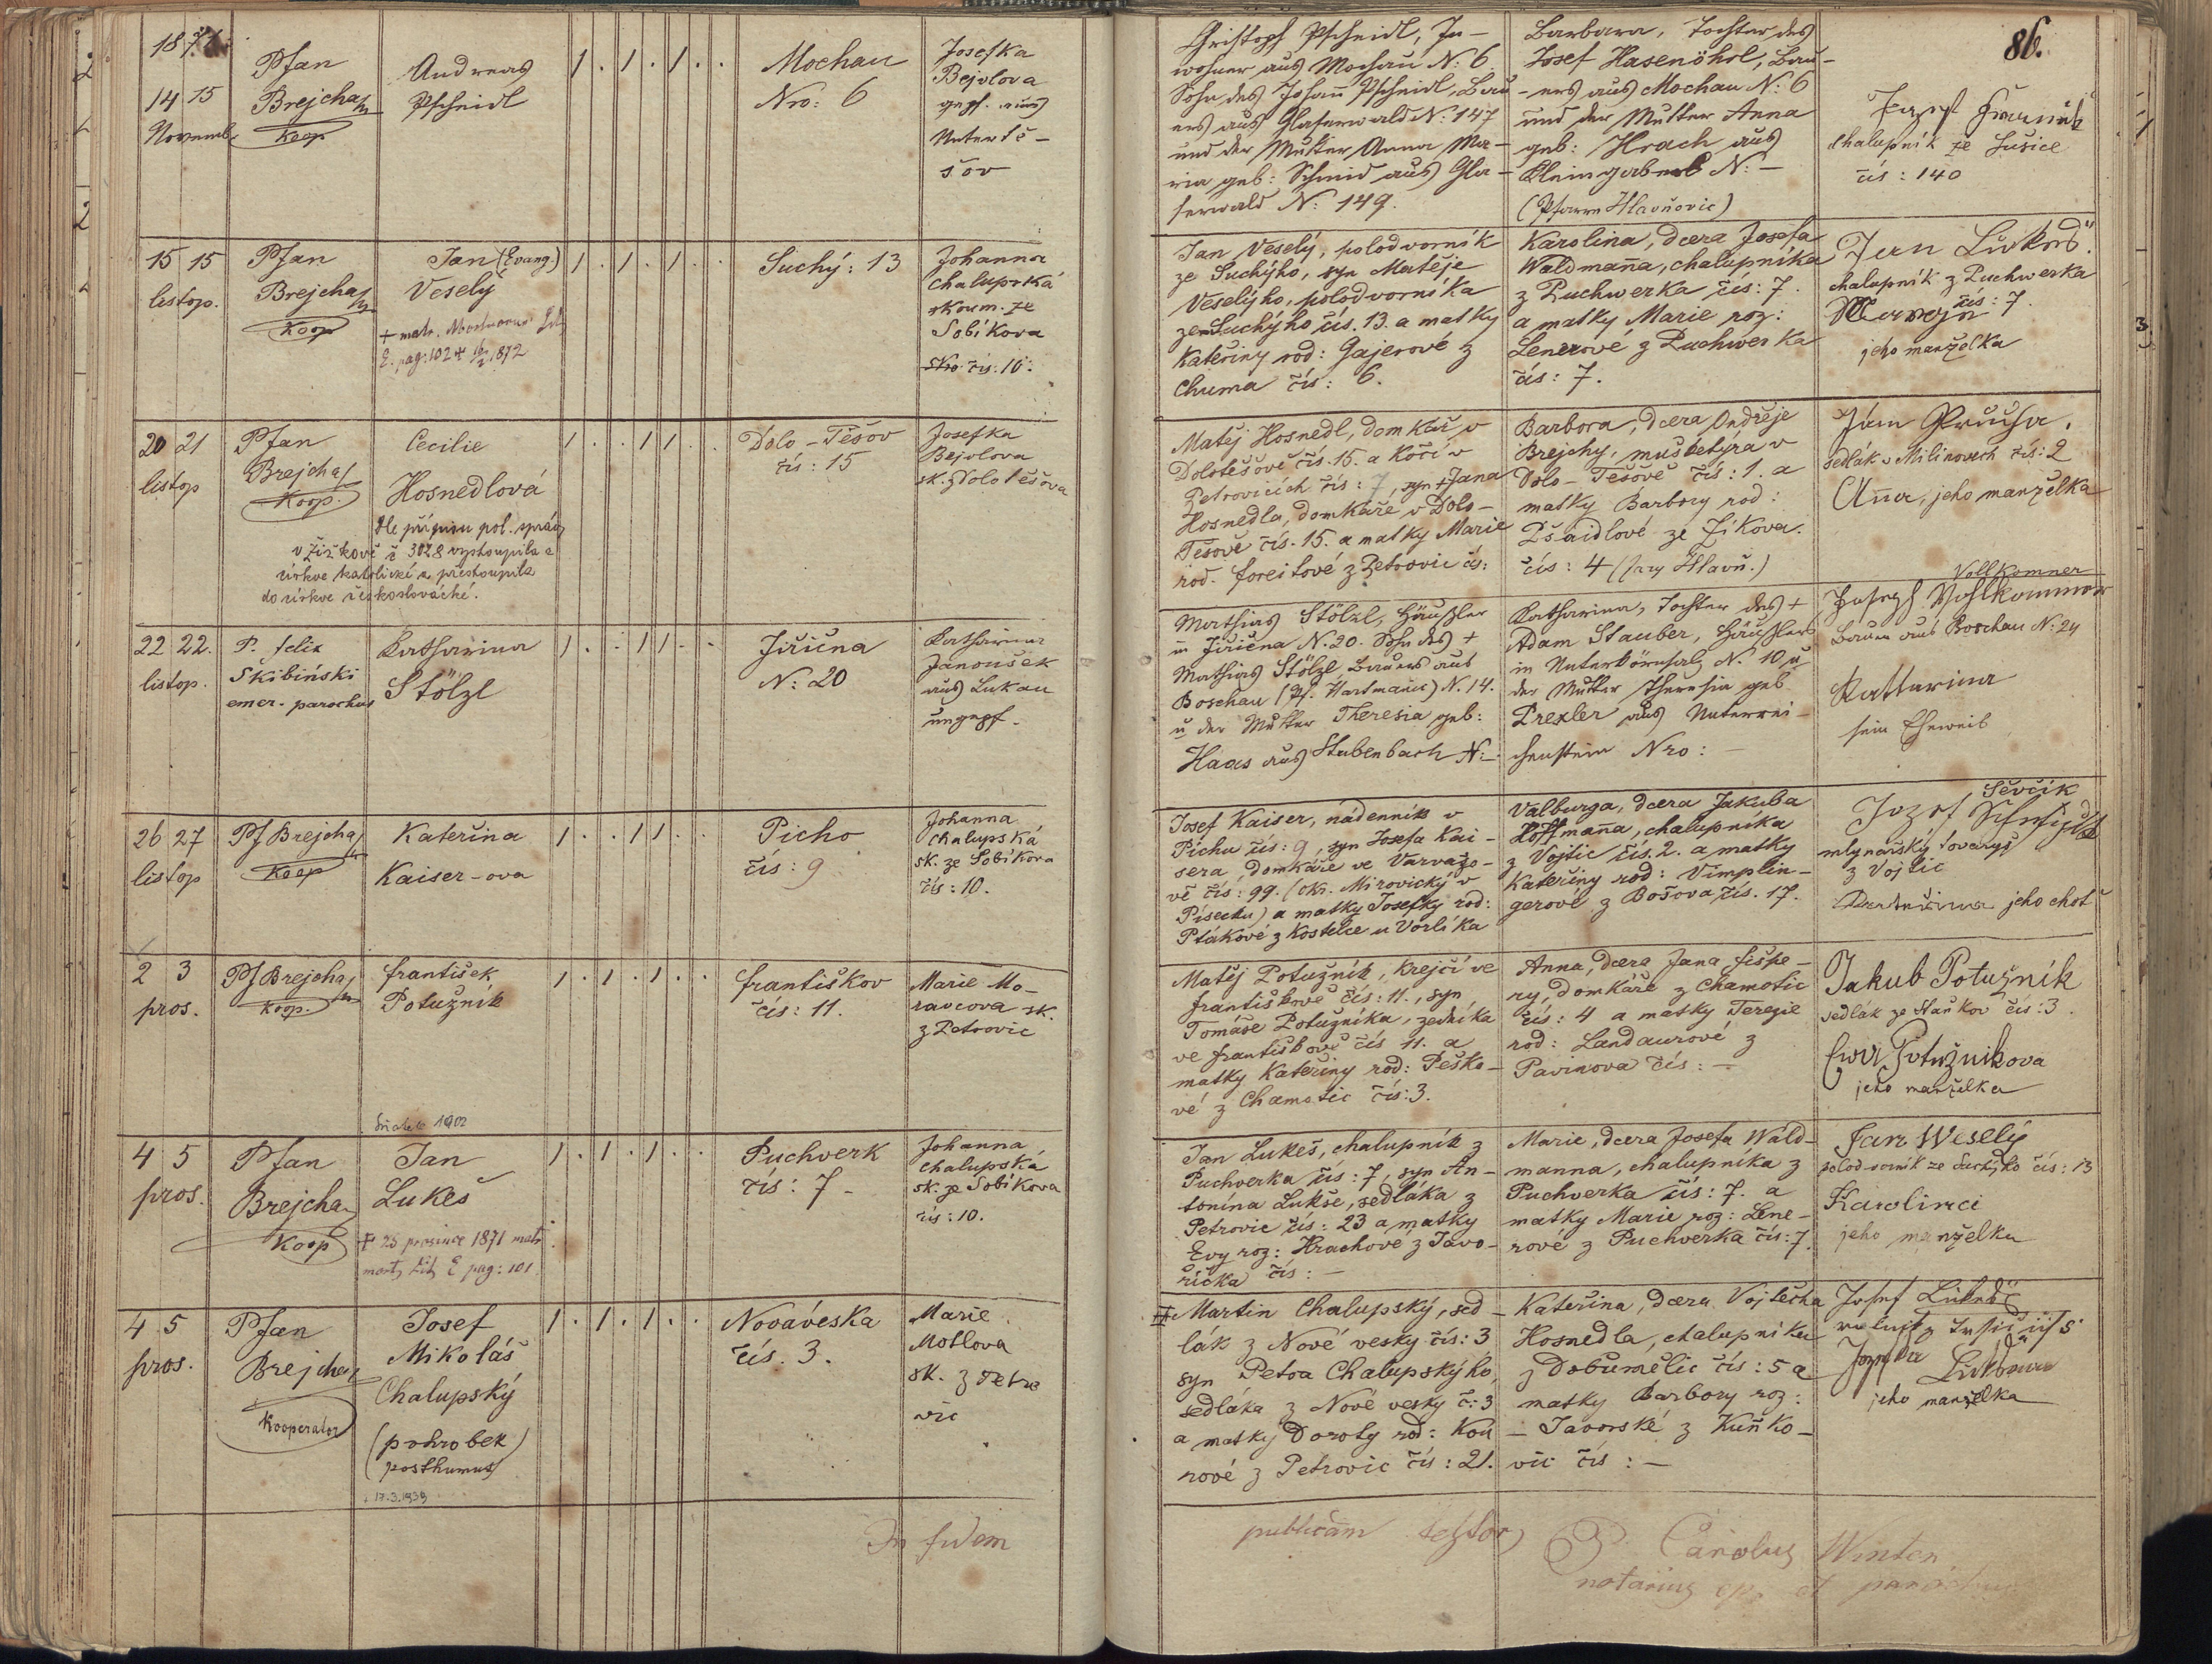 1871
86.
14 15
Novemb.
PJan
Brejcha
Koop
Andreas
Pscheidl
1 . 1 . 1 . .
Mochau
Nro: 6
Josefka
Bejvlova
gepf. aus
Unter Tě-
šov
Christoph Pscheidl, In-
wohner aus Mochau N: 6
Sohn des Johann Pscheidl, Bau-
ers aus Glaserwald N: 147
und der Mutter Anna Ma-
ria geb: Schmid aus Gla-
serwald N: 149.
Barbara, Tochter des
Josef Hasenöhrl, Bau-
ers aus Mochau N: 6
und der Mutter Anna
geb: Hrach aus
Kleingaberl N: -
(Pfarre Hlavňovic)
Josef
chalupník ze Sušice
čís: 140
15 15
listop.
PJan
Brejcha
Koop
Jan (Evang.)
Veselý
+ matr.
E. pag: 102 1872
1 . 1 . 1 . .
Suchý: 13
Johanna
Chalupská
zkoum. ze
Sobíkova
čís. 10.
Jan Veselý, polodvorník
ze Suchýho, syn Matěje
Veselýho, polodvorníka
ze Suchýho čís. 13. a matky
Kateřiny rod: Gajerové z
Chuma čís: 6.
Karolina, dcera Josefa
Waldmaña, chalupníka
z Puchwerka čís: 7.
a matky Marie roz:
Lenerove z Puchwerka
čís: 7.
Jan Lukeš
chalupník z Puchwerka
čís: 7.
jeho manželka
20 21
listop
PJan
Brejcha
Koop.
Cecilie
Hosnedlová
Dle přípisu pol. správy
v Žižkově č 3028 vystoupila z
církve katolické a přestoupila
do církve československé.
1 . . 1 1 . .
Dolo-Těšov
čís: 15
Josefka
Bejvlova
sk. z Dolotěšova
Matěj Hosnedl, domkář v
Dolotěšově čís. 15. a kočí v
Petrovicích čís: 7, syn + Jana
Hosnedla, domkáře v Dolo-
Těšově čís. 15. a matky Marie
rod. Foreitové z Petrovic čís:
Barbora, dcera Ondřeje
Brejchy, mušketýra v
Dolo-Těšově čís: 1. a
matky Barbory rod:
Pšaidlové ze Žíkova.
čís: 4 (fary Hlavň.)
Ján Průcha,
sedlák v Milínovech čís: 2
Aña, jeho manželka
22 22.
listop.
P. Felix
Skibiński
emer. parochus
Katharina
Stölzl
1 . . 1 1 . .
Jiřičná
N: 20
Katharina
Janoušek
aus Lukau
ungepf.
Mathias Stölzl, Häusler
in Jiřičena N. 20. Sohn des +
Mathias Stölzl Bauers aus
Boschau (Pf. Hartmanic) N. 14.
u der Mutter Theresia geb:
Haas aus Stubenbach N: -
Katharina, Tochter des +
Adam Stauber, Häuslers
in Unterkörnsalz N. 10 u
der Mutter Theresia geb
Drexler aus Unterrei-
chenstein Nro: -
Vollkomner
Joseph Vohlkommer
Bauer aus Boschau N: 24
Kattarina
sein Eheweib
26 27
listop
PJ Brejcha
Koop
Kateřina
Kaiser-ova
1 . . 1 1 . .
Picho
čís: 9
Johanna
Chalupská
sk. ze Sobíkova
čís: 10.
Josef Kaiser, nádenník v
Píchu čís: 9, syn Josefa Kai-
sera, domkáře ve Varvažo-
vě čís: 99. (okr. Mirovický v
Písecku) a matky Josefky rod:
Ptákové z Kostelce u Vorlíka
Valburga, dcera Jakuba
Hoffmaña, chalupníka
z Vojtic čís. 2. a matky
Kateřiny rod: Vimplin-
gerové z Bošova čís. 17.
Ševčík
Jozef
mlynařský tovaryš
z Vojtic
Kateřina jeho choť
2 3
pros.
PJ Brejcha
Koop.
František
Potužník
1 . 1 . 1 . .
Františkov
čís: 11.
Marie Mo-
ravcova sk.
z Petrovic
Matěj Potužník, krejčí ve
Františkově čís: 11., syn
Tomáše Potužníka, zedníka
ve Františkově čís 11. a
matky Kateřiny rod: Peško-
vé z Chamotic čís: 3.
Anna, dcera Jana Fišpe-
ry, domkáře z Chamotic
čís: 4 a matky Terezie
rod: Landaurové z
Pavinova čís: -
Jakub Potužník
sedlák ze Staňkov čís: 3.
Potužnikova
jeho manželka
1902
4 5
pros.
PJan
Brejcha
Koop
Jan
Lukeš
+ 25 prosince 1871 matr
mort. Lit. E pag: 101.
1 . 1 . 1 . .
Puchverk
čís: 7
Johanna
Chalupská
sk. ze Sobíkova
čís: 10.
Jan Lukeš, chalupník z
Puchverka čís: 7, syn An-
tonína Lukše, sedláka z
Petrovic čís: 23 a matky
Evy roz: Hrachové z Javo-
říčka čís: -
Marie, dcera Josefa Wald-
manna, chalupníka z
Puchverka čís: 7. a
matky Marie roz: Lene-
rové z Puchverka čís: 7.
Jan Weselý
polodvorník ze Suchýho čís: 13
Karolina
jeho manželka
4 5
pros.
PJan
Brejcha
Kooperátor
Josef
Mikoláš
Chalupský
(pohrobek)
posthumus
17.3.1939
1 . 1 . 1 . .
Nováveska
čís. 3.
Marie
Motlova
sk. z Petro
vic
+ Martin Chalupský, sed-
lák z Nové vesky čís: 3
syn Petra Chalupskýho,
sedláka z Nové vesky č: 3
a matky Doroty rod: Kou
rové z Petrovic čís: 21.
Kateřina, dcera Vojtěcha
Hosnedla, chalupníka
z Dobuměliс čís: 5 a
matky Barbory roz:
- Javorské z Kuňko-
vic čís: -
Josef Lukeš
Lukšova
jeho manželka
In fidem
publicam
P. Carolus Winter
notarius ep. et parochus